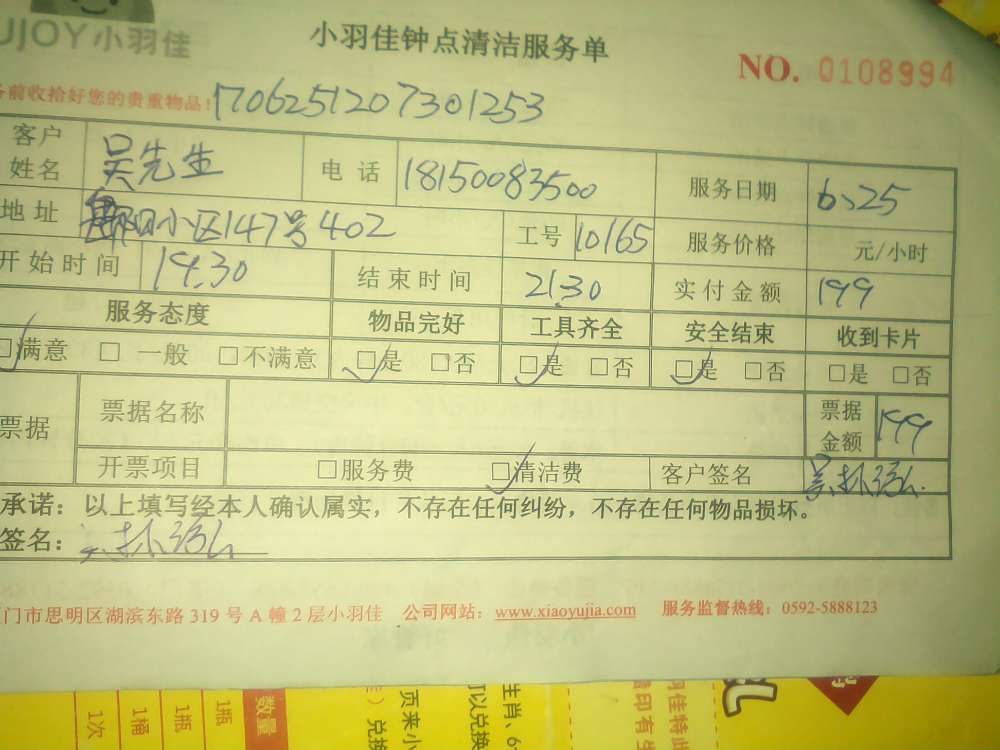 UJOY小羽佳
小羽佳钟点清洁服务单
NO. 0108994
务前收拾好您的贵重物品！
1706251207301253
客户姓名 吴先生 电话 18150083500 服务日期 6、25
地址 阳小区147号402 工号 10165 服务价格 元/小时
开始时间 19.30 结束时间 21.30 实付金额 199
服务态度 物品完好 工具齐全 安全结束 收到卡片
□满意 □一般 □不满意 □是 □否 □是 □否 □是 □否 □是 □否
票据 票据名称 票据金额 199
开票项目 □服务费 □清洁费 客户签名
承诺：以上填写经本人确认属实，不存在任何纠纷，不存在任何物品损坏。
签名：
门市思明区湖滨东路 319 号 A 幢 2 层小羽佳 公司网站：www.xiaoyujia.com 服务监督热线：0592-5888123
数量
1瓶
1瓶
1桶
1次
页来小
）兑换
生肖、6
可以兑换
羽佳特此